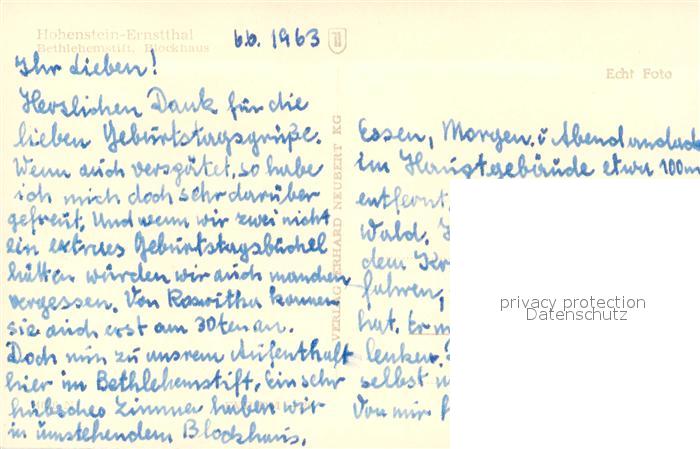 Hohenstein-Ernstthal
Bethlehemstift, Blockhaus
6.6. 1963
Ihr Lieben!
Herzlichen Dank für die
lieben Geburtstagsgrüße.
Wenn auch verspätet, so habe
ich mich doch sehr darüber
gefreut. Und wenn wir zwei nicht
ein extraes Geburtstagsbüchel
hätten würden wir auch manchen
vergessen. Von Roswitha kamen
sie auch erst am 30ten an.
Doch nun zu unsrem Aufenthalt
hier im Bethlehemstift. Ein sehr
hübsches Zimmer haben wir
in umstehendem Blockhaus.
VERLAG ERHARD NEUBERT KG
Echt Foto
Essen, Morgen. u Abendandac
im Hauptgebäude etwa 100m
entfernt.
Wald.
dem Kr
fahren,
hat. Er m
lenken.
selbst
Von mir
privacy protection
Datenschutz